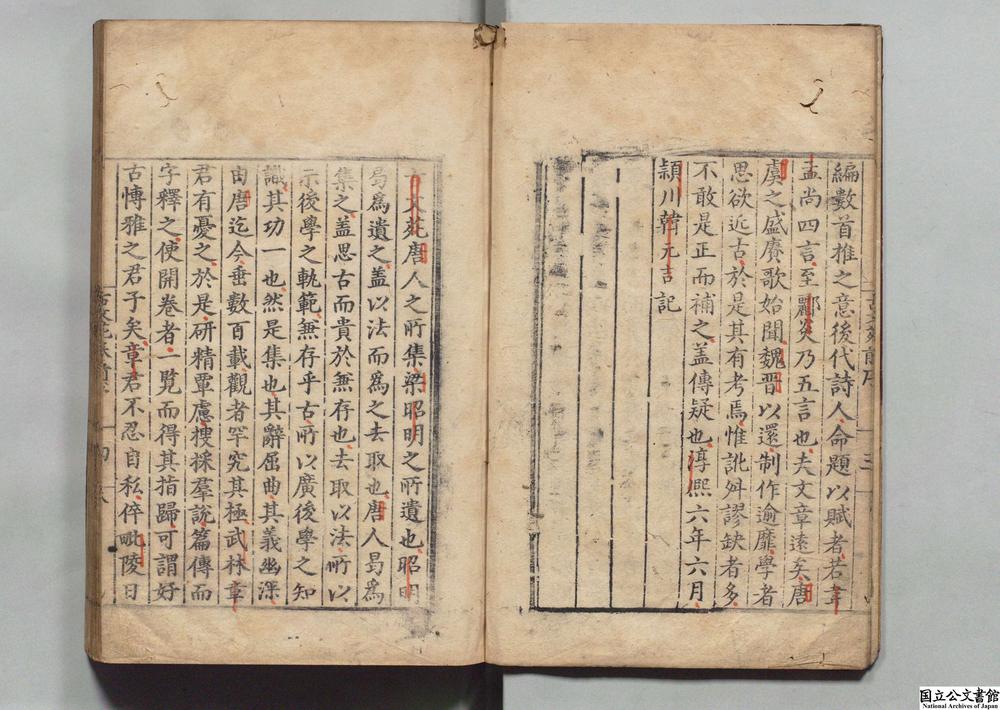 編數首推之意後代詩人命題以賦者若韋
孟尚四言至酈炎乃五言也夫文章遠矣唐
虞之盛賡歌始聞魏晋以還制作逾靡學者
思欲近古於是其有考焉惟訛舛謬缺者多
不敢是正而補之盖傳疑也淳熙六年六月
頴川韓元吉記
古文苑前序
三
文苑唐人之所集梁昭明之所遺也昭明
曷爲遺之盖以法而爲之去取也唐人曷爲
集之盖思古而貴於無存也去取以法所以
示後學之軌範無存乎古所以廣後學之知
識其功一也然是集也其辭屈曲其義幽深
由唐迄今垂數百載觀者罕究其極武林章
君有憂之於是研精覃慮搜採羣說篇傳而
字釋之使開卷者一覽而得其指歸可謂好
古愽雅之君子矣章君不忍自私倅毗陵日
四
国立公文書館
National Archives of Japan